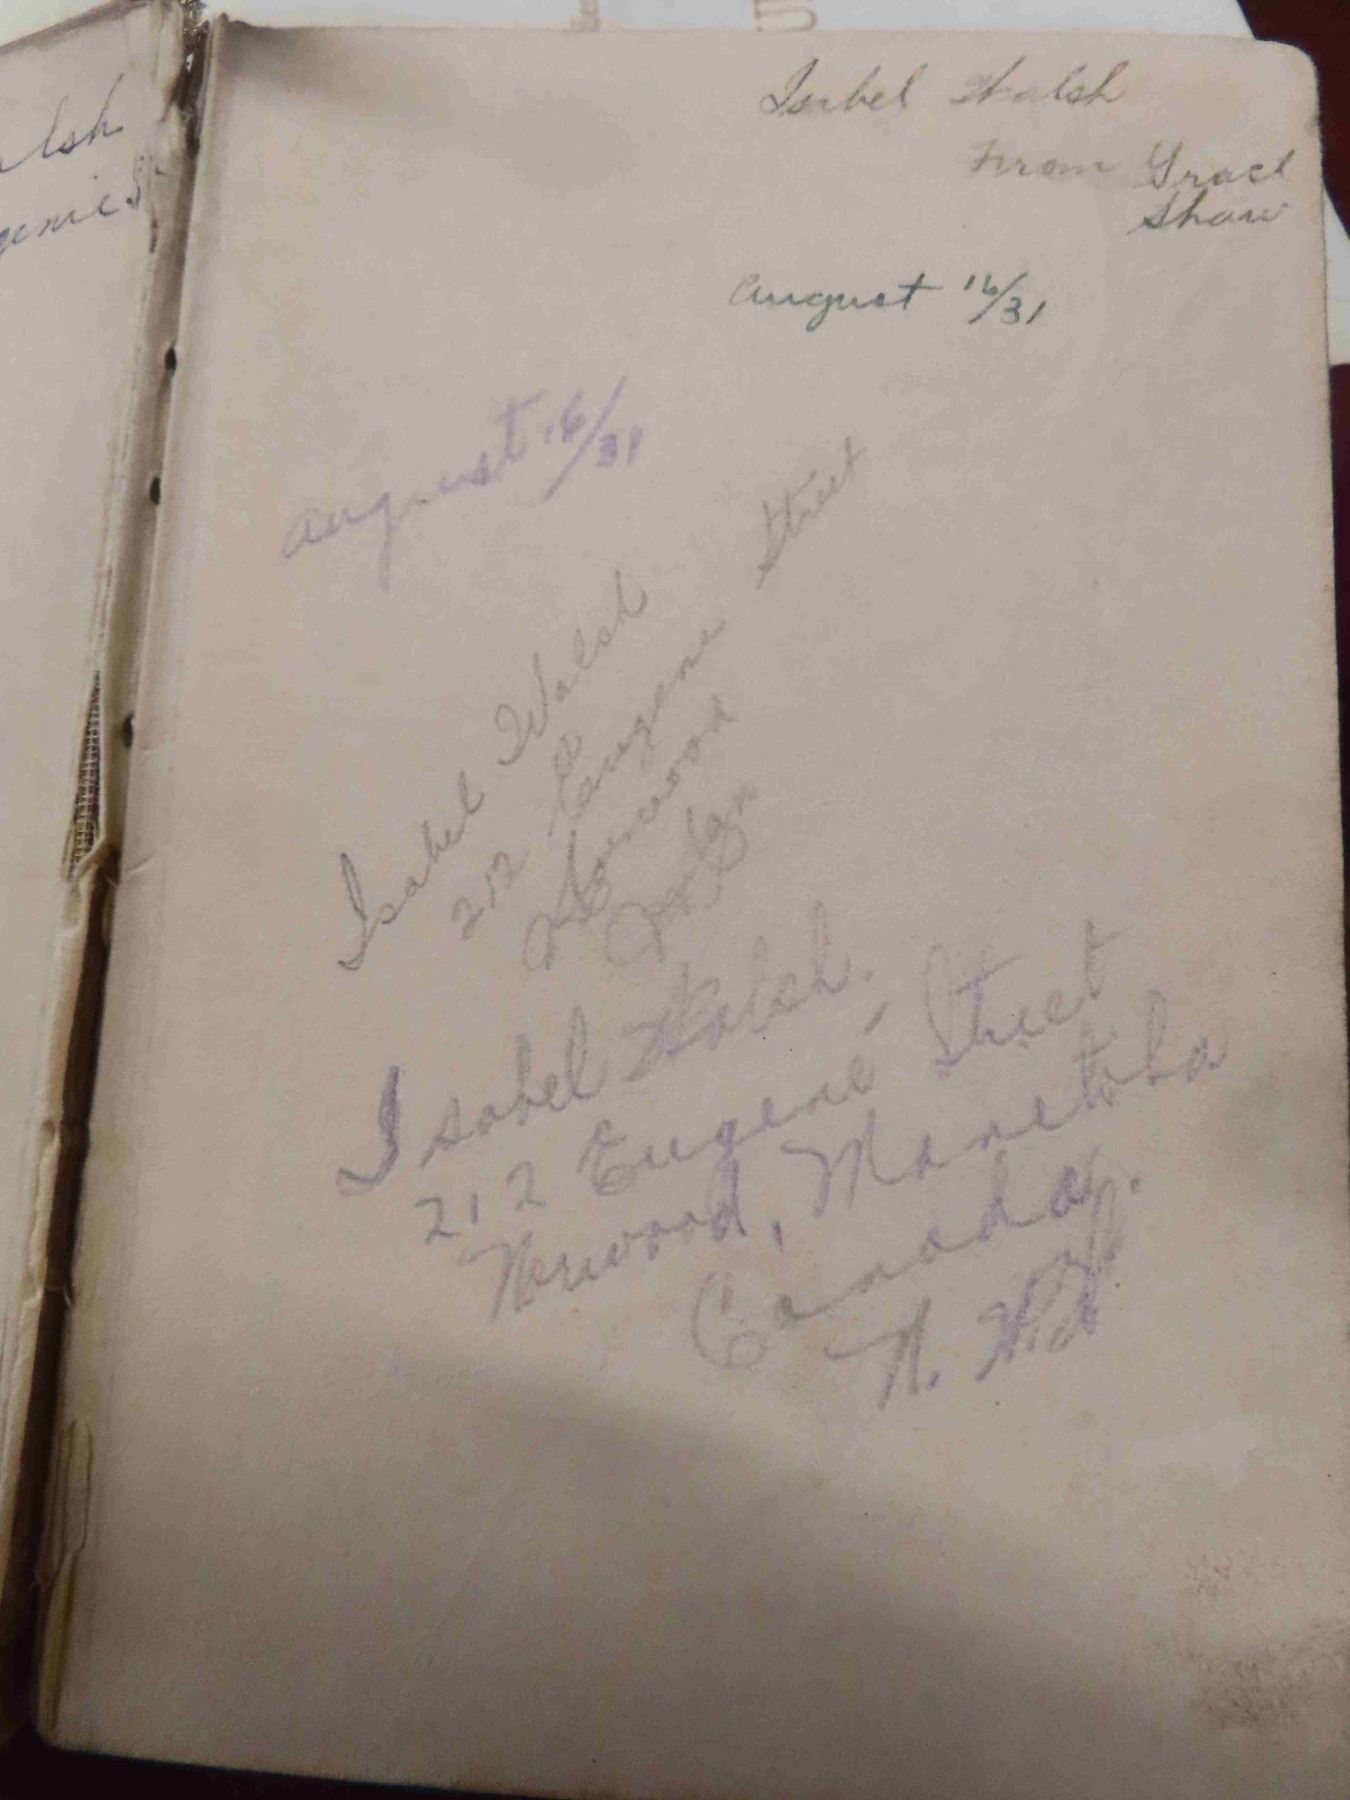 alsh
genie St
Isabel Walsh
From Grace
Shaw
August 16/31
August 16/31
Isabel Walsh
212 Eugene Street
Norwood
Isabel Walsh.
212 Eugene Street
Norwood, Manitoba
Canada.